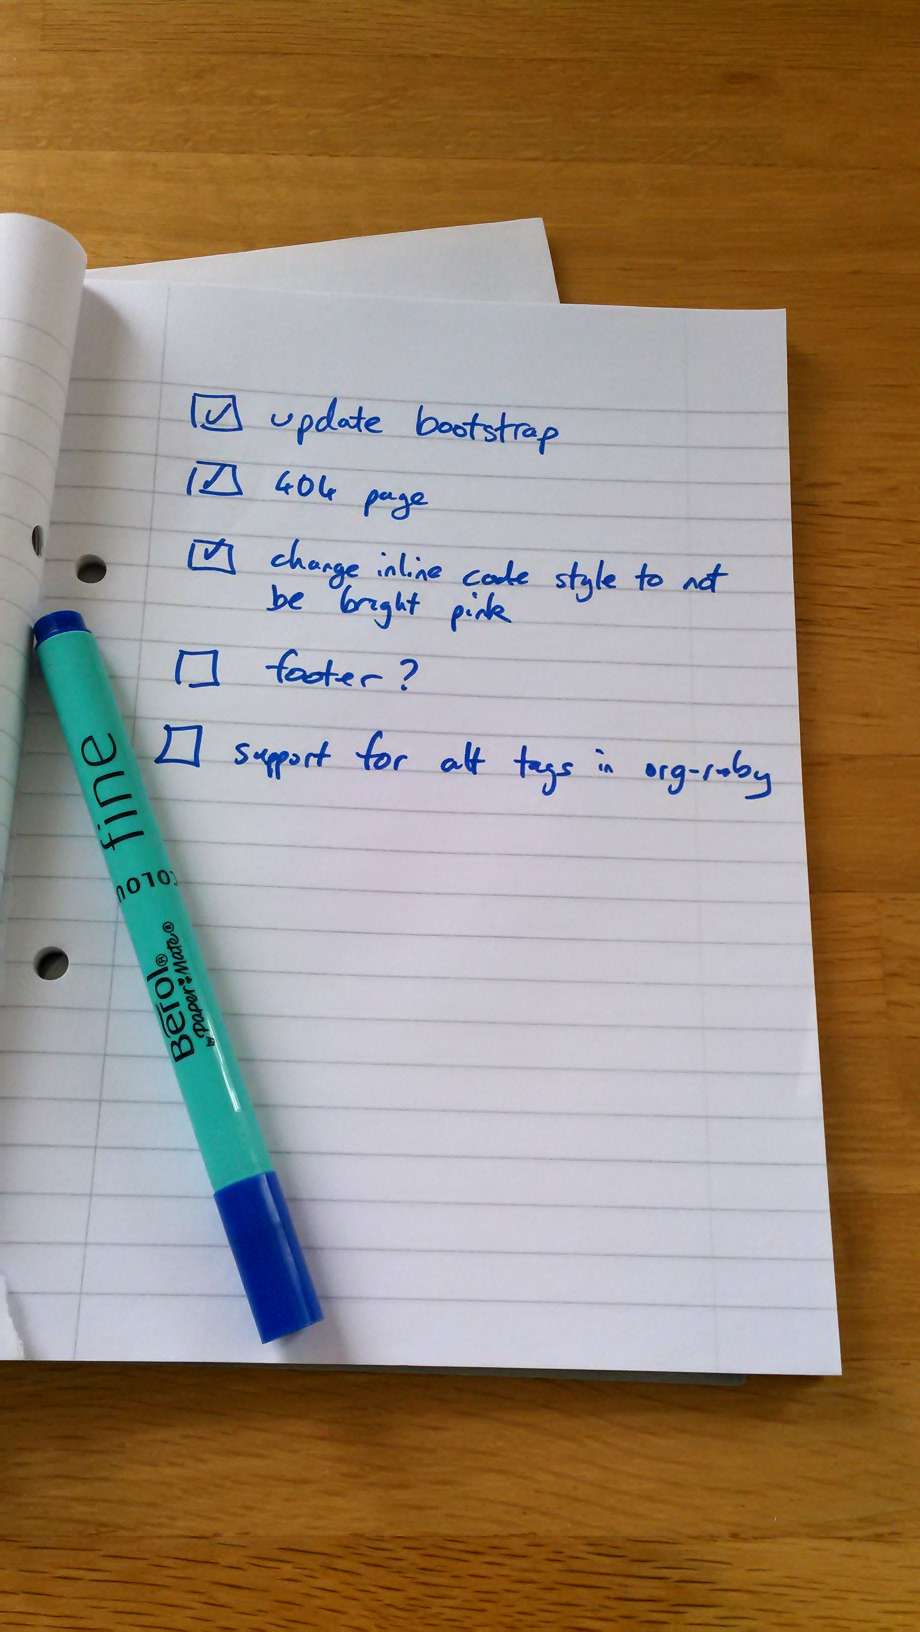 update bootstrap
404 page
change inline code style to not
be bright pink
footer?
support for alt tags in org-ruby
fine
Berol®
by Paper Mate®